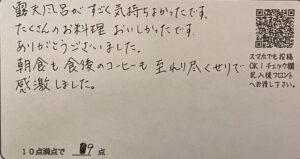 露天風呂がすごく気持ちよかったです。
たくさんのお料理 おいしかったです。
ありがとうございました。
朝食も食後のコーヒーも至れり尽くせりで
感激しました。
10点満点で 9 点
スマホでも投稿
OK！チェック欄
記入後フロント
へお渡し下さい。